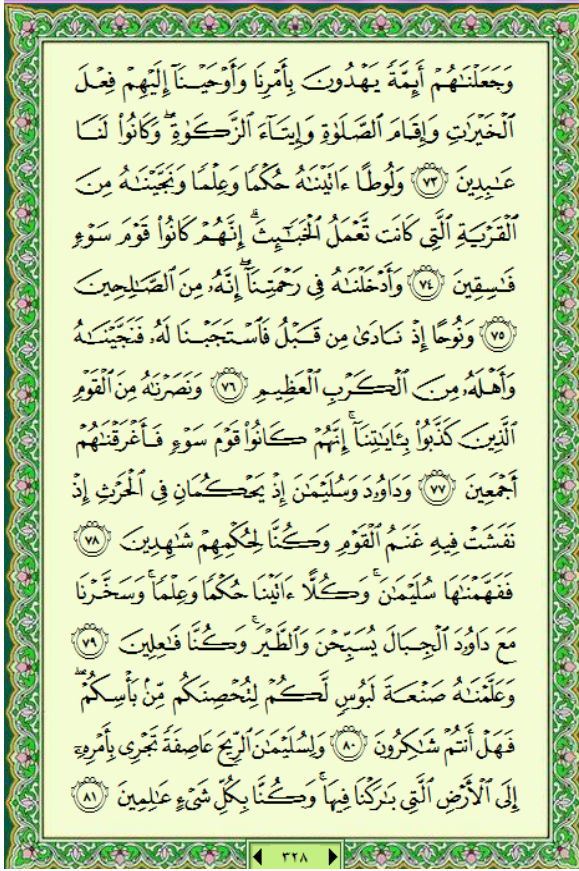 وَجَعَلْنَٰهُمْ أَئِمَّةً يَهْدُونَ بِأَمْرِنَا وَأَوْحَيْنَآ إِلَيْهِمْ فِعْلَ
ٱلْخَيْرَٰتِ وَإِقَامَ ٱلصَّلَوٰةِ وَإِيتَآءَ ٱلزَّكَوٰةِ ۖ وَكَانُوا۟ لَنَا
عَٰبِدِينَ ﴿٧٣﴾ وَلُوطًا ءَاتَيْنَٰهُ حُكْمًا وَعِلْمًا وَنَجَّيْنَٰهُ مِنَ
ٱلْقَرْيَةِ ٱلَّتِى كَانَت تَّعْمَلُ ٱلْخَبَٰٓئِثَ ۗ إِنَّهُمْ كَانُوا۟ قَوْمَ سَوْءٍ
فَٰسِقِينَ ﴿٧٤﴾ وَأَدْخَلْنَٰهُ فِى رَحْمَتِنَآ ۖ إِنَّهُۥ مِنَ ٱلصَّٰلِحِينَ
﴿٧٥﴾ وَنُوحًا إِذْ نَادَىٰ مِن قَبْلُ فَٱسْتَجَبْنَا لَهُۥ فَنَجَّيْنَٰهُ
وَأَهْلَهُۥ مِنَ ٱلْكَرْبِ ٱلْعَظِيمِ ﴿٧٦﴾ وَنَصَرْنَٰهُ مِنَ ٱلْقَوْمِ
ٱلَّذِينَ كَذَّبُوا۟ بِـَٔايَٰتِنَآ ۚ إِنَّهُمْ كَانُوا۟ قَوْمَ سَوْءٍ فَأَغْرَقْنَٰهُمْ
أَجْمَعِينَ ﴿٧٧﴾ وَدَاوُۥدَ وَسُلَيْمَٰنَ إِذْ يَحْكُمَانِ فِى ٱلْحَرْثِ إِذْ
نَفَشَتْ فِيهِ غَنَمُ ٱلْقَوْمِ وَكُنَّا لِحُكْمِهِمْ شَٰهِدِينَ ﴿٧٨﴾
فَفَهَّمْنَٰهَا سُلَيْمَٰنَ ۚ وَكُلًّا ءَاتَيْنَا حُكْمًا وَعِلْمًا ۚ وَسَخَّرْنَا
مَعَ دَاوُۥدَ ٱلْجِبَالَ يُسَبِّحْنَ وَٱلطَّيْرَ ۚ وَكُنَّا فَٰعِلِينَ ﴿٧٩﴾
وَعَلَّمْنَٰهُ صَنْعَةَ لَبُوسٍ لَّكُمْ لِتُحْصِنَكُم مِّنۢ بَأْسِكُمْ ۖ
فَهَلْ أَنتُمْ شَٰكِرُونَ ﴿٨٠﴾ وَلِسُلَيْمَٰنَ ٱلرِّيحَ عَاصِفَةً تَجْرِى بِأَمْرِهِۦٓ
إِلَى ٱلْأَرْضِ ٱلَّتِى بَٰرَكْنَا فِيهَا ۚ وَكُنَّا بِكُلِّ شَىْءٍ عَٰلِمِينَ ﴿٨١﴾
٣٢٨